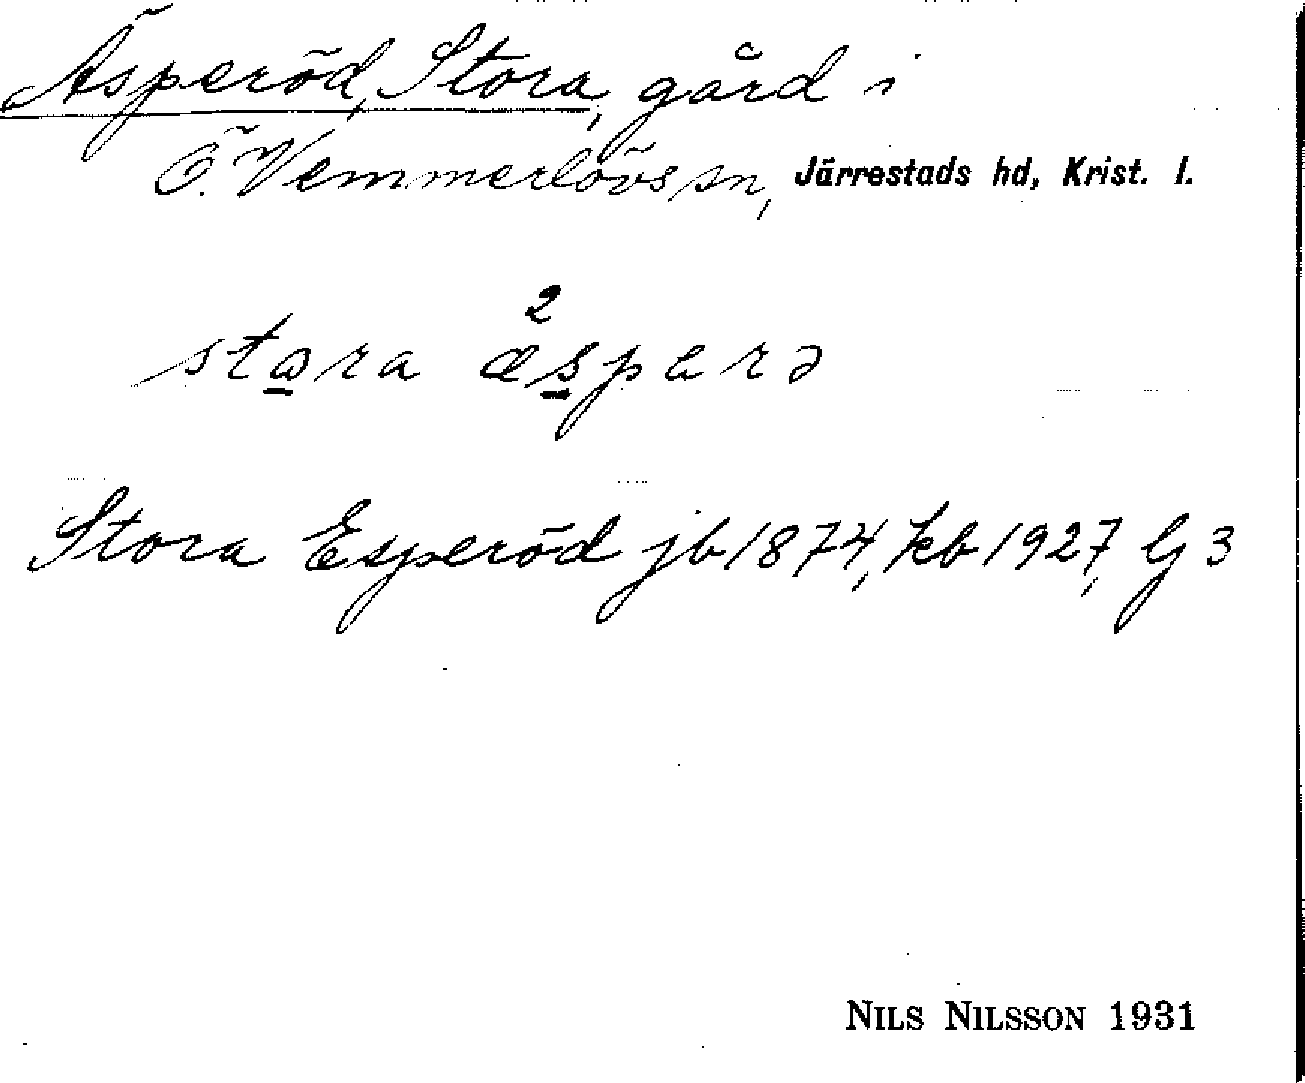 Äsperöd, Stora, gård i
Ö. Vemmerlövs sn, Järrestads hd, Krist. l.
2
stora æsperə
Stora Esperöd jb 1874, kb 1927, G 3
NILS NILSSON 1931